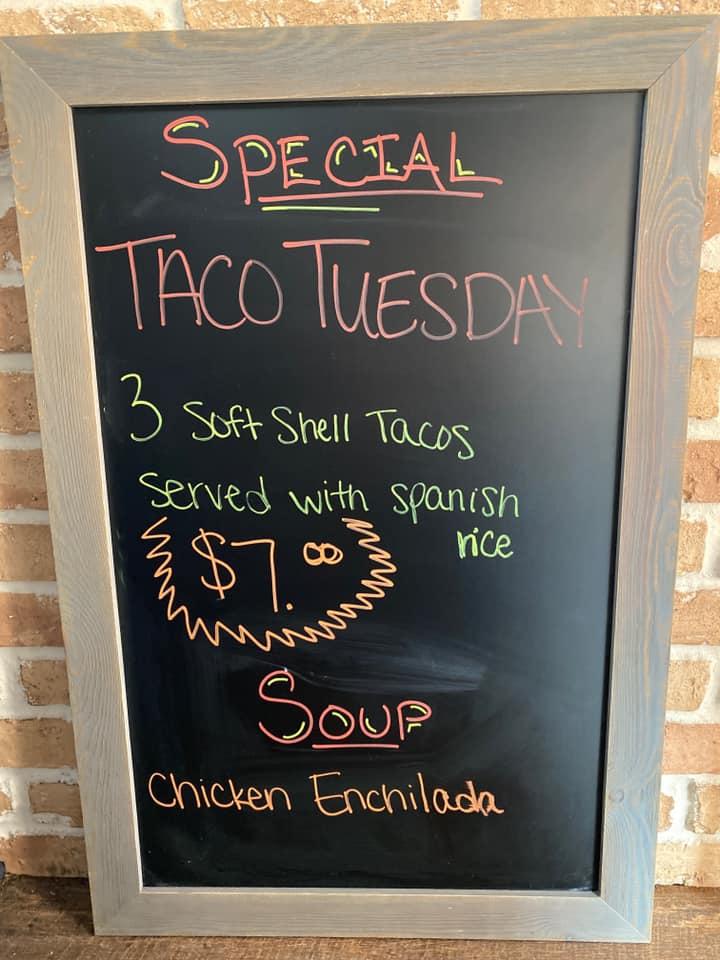 SPECIAL
TACO TUESDAY
3 Soft Shell Tacos
Served with spanish
rice
$7.00
SOUP
Chicken Enchilada